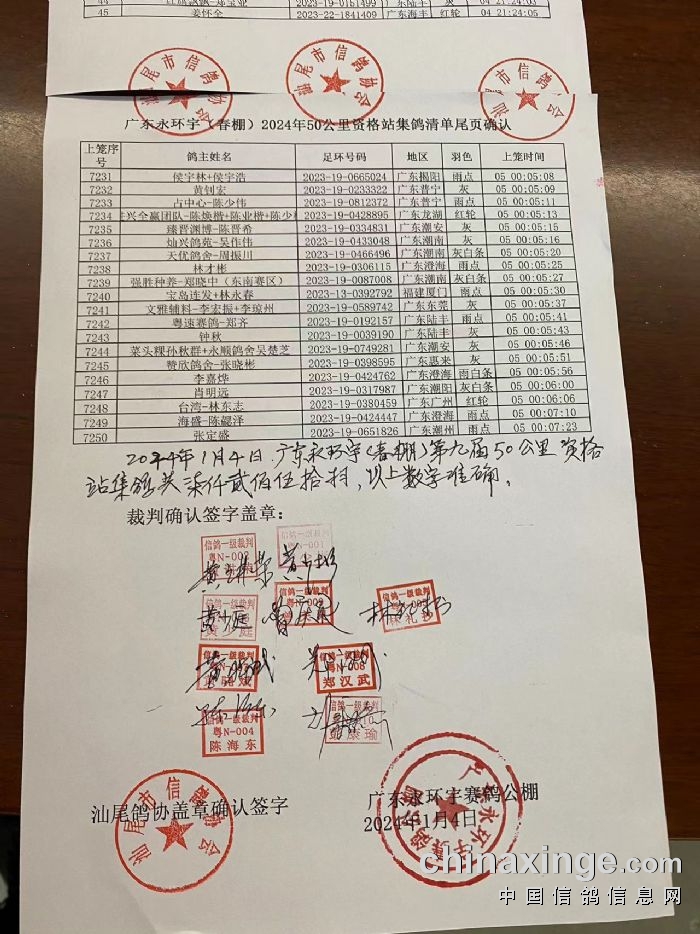 45 姜怀全 2023-22-1841409 广东海丰 红轮 04 21:24:05
汕尾市信鸽协会
汕尾市信鸽协会
广东永环宇（春棚）2024年50公里资格站集鸽清单尾页确认
上笼序号 鸽主姓名 足环号码 地区 羽色 上笼时间
7231 侯宇林+侯宇浩 2023-19-0665024 广东揭阳 雨点 05 00:05:08
7232 黄钊宏 2023-19-0233322 广东普宁 灰 05 00:05:09
7233 占中心-陈少伟 2023-19-0812372 广东普宁 雨点 05 00:05:11
7234 兴全赢团队-陈焕楷+陈业楷+陈少 2023-19-0428895 广东龙湖 红轮 05 00:05:13
7235 臻晋渊博-陈晋希 2023-19-0334831 广东潮安 灰 05 00:05:15
7236 灿兴鸽苑-吴作伟 2023-19-0433048 广东潮南 灰 05 00:05:16
7237 天优鸽舍-周振川 2023-19-0466496 广东潮南 灰白条 05 00:05:20
7238 林才彬 2023-19-0306115 广东澄海 雨点 05 00:05:25
7239 强胜种养-郑晓中（东南赛区） 2023-19-0087008 广东潮南 灰白条 05 00:05:27
7240 宝岛连发+林永春 2023-13-0392792 福建厦门 雨点 05 00:05:30
7241 文雅辅料-李宏振+李琼州 2023-19-0589742 广东东莞 灰 05 00:05:37
7242 粤速赛鸽-郑齐 2023-19-0192157 广东陆丰 雨点 05 00:05:41
7243 钟秋 2023-19-0039190 广东陆丰 灰 05 00:05:43
7244 菜头粿孙秋群+永顺鸽舍吴楚芝 2023-19-0749281 广东潮安 灰 05 00:05:46
7245 赞欣鸽舍-张晓彬 2023-19-0398595 广东惠来 灰 05 00:05:51
7246 李嘉烨 2023-19-0424762 广东澄海 雨白条 05 00:05:56
7247 肖明远 2023-19-0317987 广东潮阳 灰白条 05 00:06:00
7248 台湾-林东志 2023-19-0380459 广东广州 红轮 05 00:06:06
7249 海盛-陈勰泽 2023-19-0424447 广东澄海 雨点 05 00:07:10
7250 张定盛 2023-19-0651826 广东潮州 雨点 05 00:07:23
2024年1月4日广东永环宇（春棚）第九届50公里资格
站集鸽共柒仟贰佰伍拾羽，以上数字准确。
裁判确认签字盖章：
信鸽一级裁判 信鸽一级裁判
粤N-001
信鸽一级裁判 信鸽一级裁判
信鸽一级裁判 信鸽一级裁判
粤N-008
郑汉武
信鸽一级裁判 信鸽一级裁判
粤N-004
陈海东
汕尾市信鸽协会
汕尾鸽协盖章确认签字 广东永环宇赛鸽公棚
2024年1月4日
chinaxinge.com
中国信鸽信息网